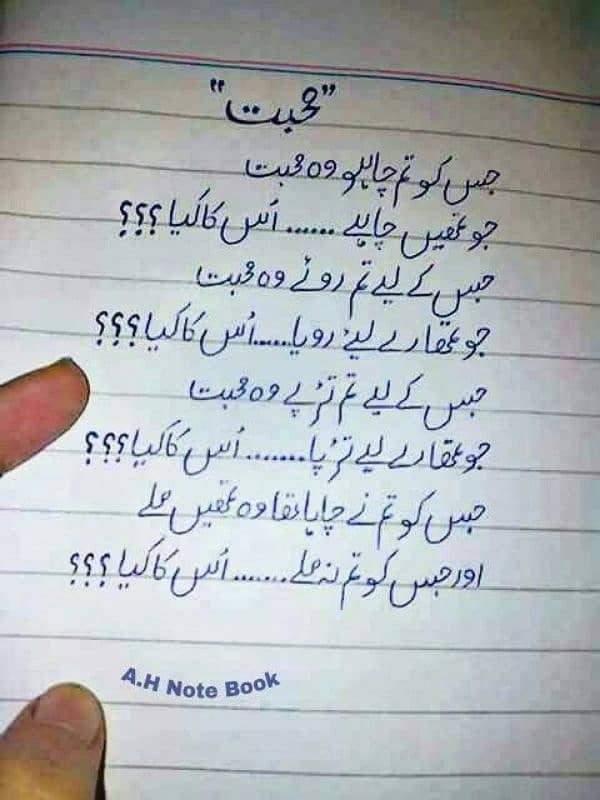 "محبت"
جس کو تم چاہو وہ محبت
جو تمھیں چاہے ...... اُس کا کیا ؟؟؟
جس کے لیے تم روئے وہ محبت
جو تمھارے لیے رویا......اُس کا کیا ؟؟؟
جس کے لیے تم تڑپے وہ محبت
جو تمھارے لیے تڑپا........ اُس کا کیا ؟؟؟
جس کو تم نے چاہا تھا وہ تمھیں ملے
اور جس کو تم نہ ملے....... اُس کا کیا ؟؟؟
A.H Note Book